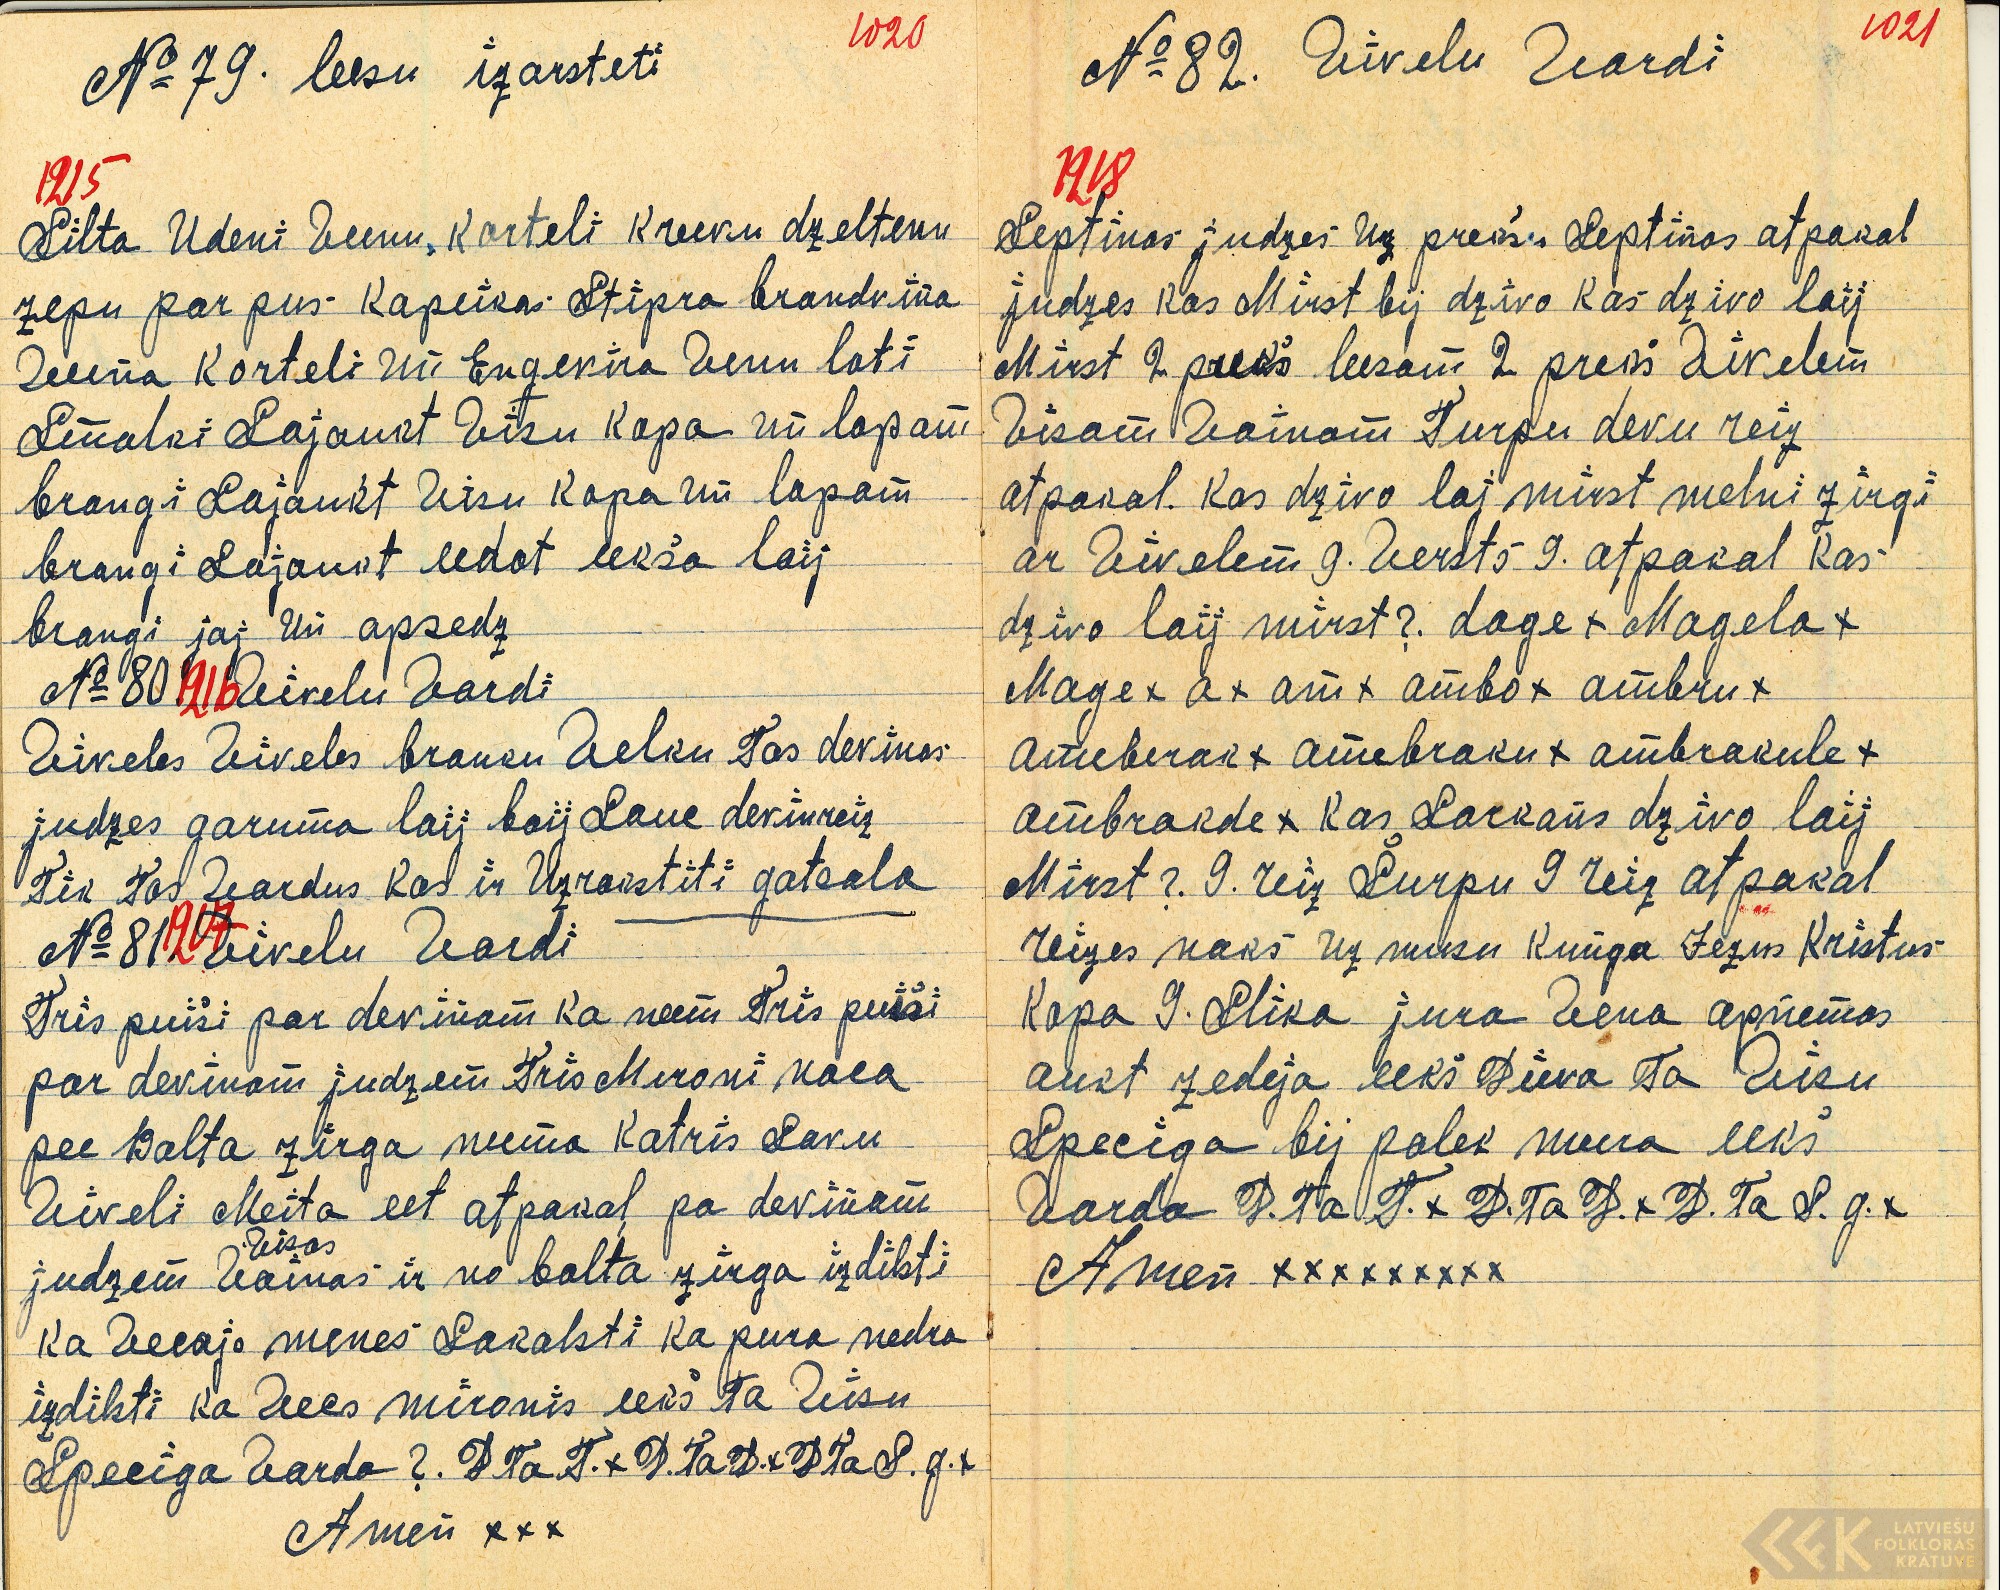 1020
№ 79. leesu izarsteti
1915
Silta Udeni Veenu, Korteli Kreevu dzeltenu
zepu par pus Kapeikas Stipra brandviña
Veena Korteli uñ Engevira Venu loti
Smalki Sajaukt Visu Kopa uñ lopam̃
brangi Sajaukt Visu Kopa uñ lopam̃
brangi Sajaukt eedot eekša laij
brangi jaj uñ apsedz
№ 80 1916 Vivelu Vardi
Viveles Viveles brauku Velku Tas devinas
judzes garuma laij baij Saue devinreiz
Tik Tos Vardus kas ir Uzrakstiti gateala
№ 81 1917 Vivelu Vardi
Tris puiši par deviñam ka neem̃ Tris puiši
par devinam̃ judzem̃ Tris Mironi naca
pee Balta zirga neem̃a Katris Savu
Viveli Meita eet atpakal pa deviñam̃
Visas
judzem̃ Vainas ir no balta zirga izdilsti
ka Vecajs menes Sakalsti ka pura nedra
izdilsti ka Vecs mironis eekš Ta Visu
Speciga Varda ?. D Ta T.x D.Ta D.x D Ta S. g.x
Ameñ xxx
1021
№ 82. Vivelu Vardi
1918
Septinas judzes Uz prekšu Septiñas atpakal
judzes kas Mirst bij dzivo kas dzivo laij
Mirst 2 preekš leesam̃ 2 prekš Vivelem̃
Visam̃ Vainam̃ Turpu devu reiz
atpakal. Kas dzivo laj mirst melni zirgi
ar Vivelem̃ 9. Versts 9. atpakal Kas
dzivo laij mirst ?. dage x Magela x
Mage x a x am̃ x am̃bo x am̃bru x
Am̃eberak x am̃ebraku x am̃brakule x
am̃brakde x Kas Sarkañs dzivo laij
Mirst ?. 9. reiz Šurpu 9 reiz atpakal
reizes nakš Uz musu Kuñga Jezus Kristus
Kopa 9. Slika jura Vena apñem̃as
aukt zedeja eekš Dieva Ta Visu
Speciga bij palek meera eekš
Varda D.Ta T.x D.Ta D.x D.Ta S. g.x
Ameñ xxxxxxxxx
LATVIEŠU
FOLKLORAS
KRĀTUVE